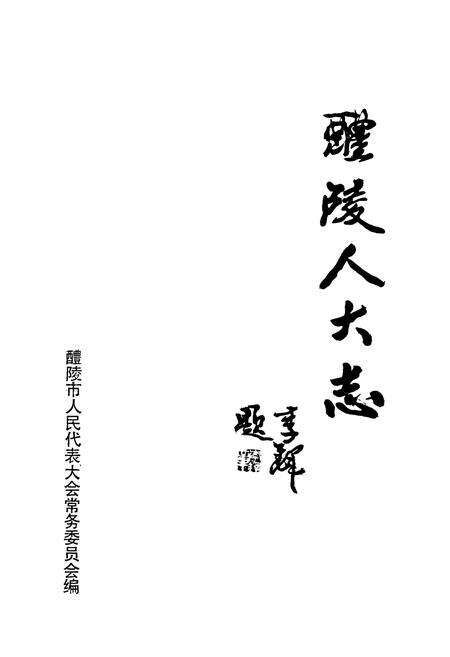 醴陵人大志
李鐸
题
醴陵市人民代表大会常务委员会编